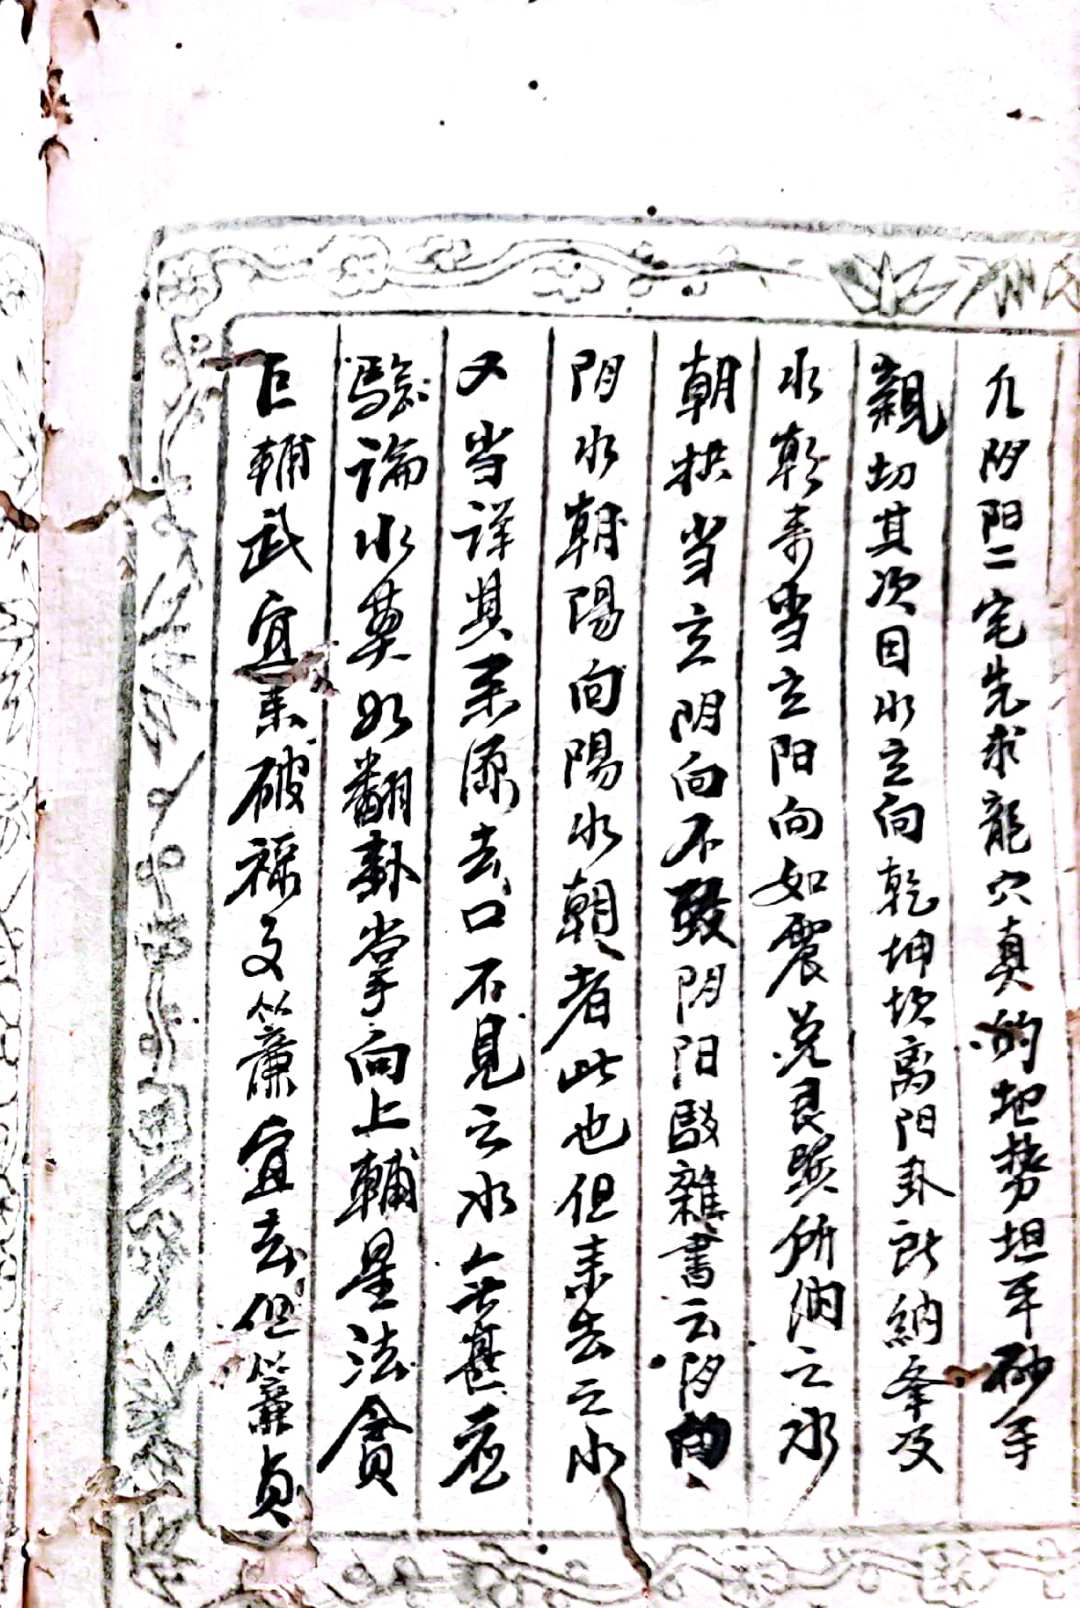 凡阴阳二宅先求龍穴真的地势坦平砂手
親切其次因水立向乾坤坎离阳卦所納峯及
水朝来当立阳向如震兑艮巽所納之水
朝拱当立阴向不致阴阳駁雜書云阴向
阴水朝陽向陽水朝者此也但来去之水
又当详其来源去口不見之水无甚应
驗論水莫如翻卦掌向上輔星法貪
巨輔武宜来破祿文簾宜去但簾貞